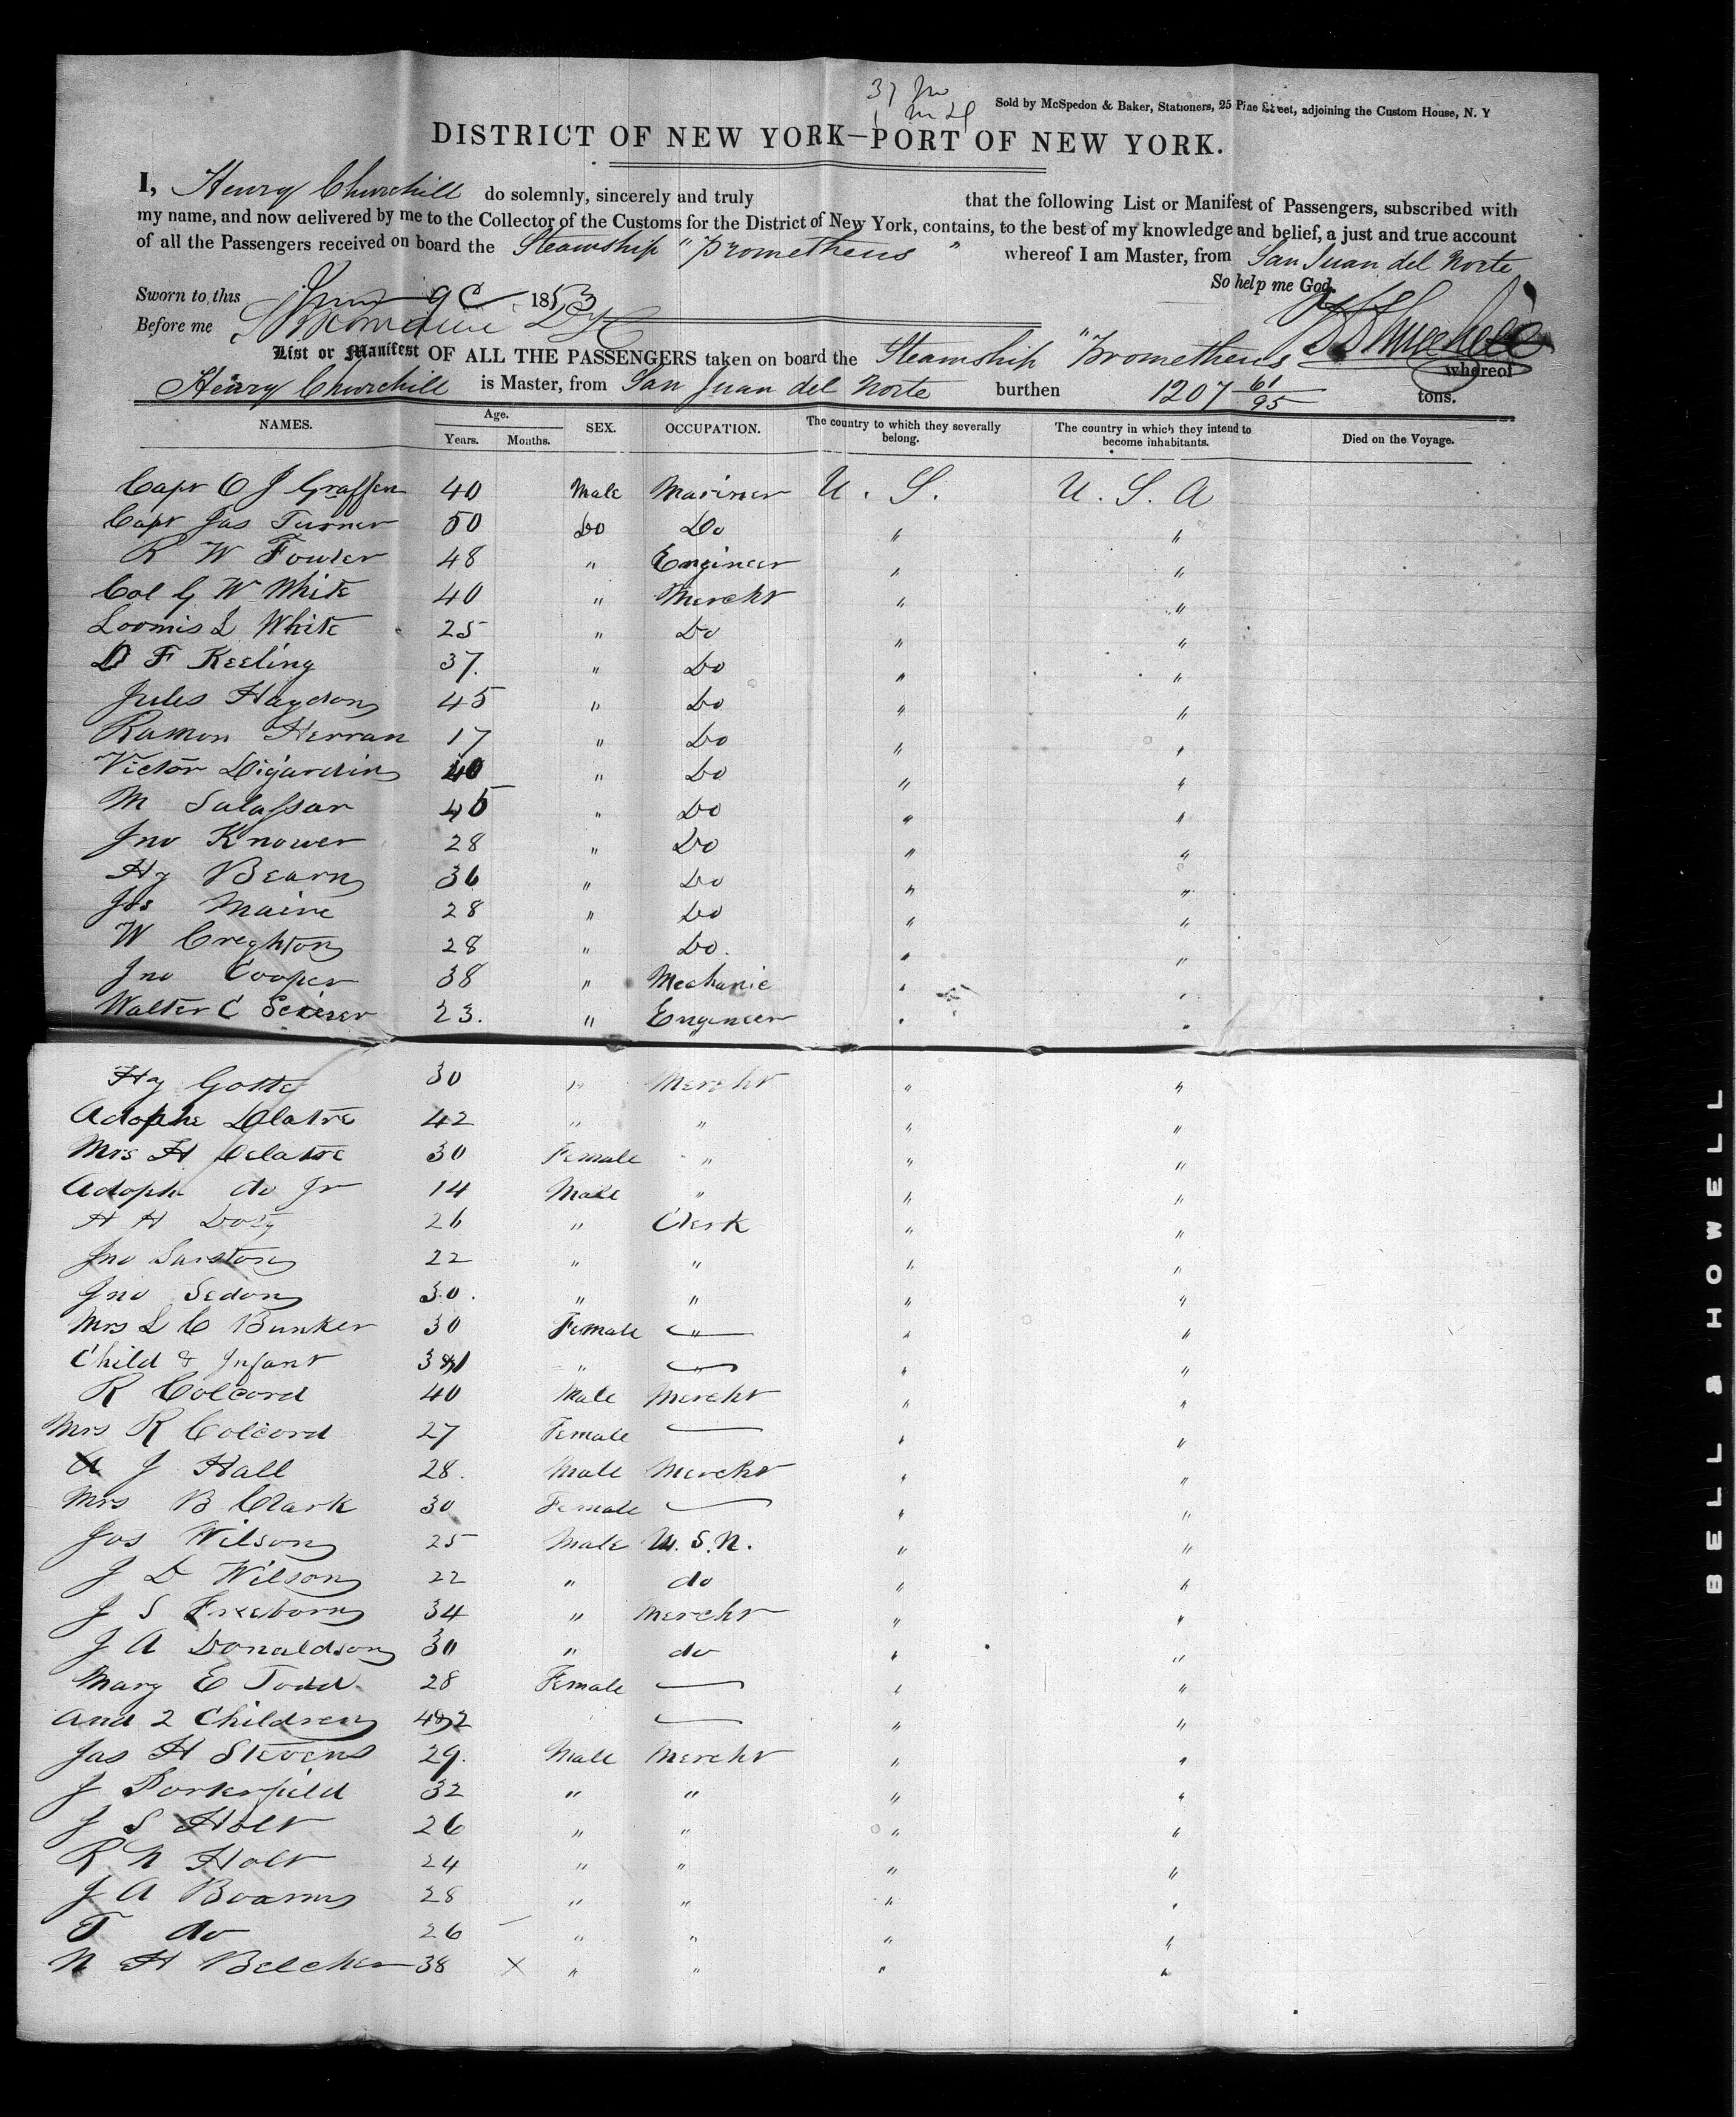 Sold by McSpedon & Baker, Stationers, 25 Pine Street, adjoining the Custom House, N. Y
DISTRICT OF NEW YORK—PORT OF NEW YORK.
I, Henry Churchill do solemnly, sincerely and truly that the following List or Manifest of Passengers, subscribed with
my name, and now delivered by me to the Collector of the Customs for the District of New York, contains, to the best of my knowledge and belief, a just and true account
of all the Passengers received on board the Steamship "Prometheus" whereof I am Master, from San Juan del Norte
So help me God.
Sworn to this 9 1853
Before me
List or Manifest OF ALL THE PASSENGERS taken on board the Steamship "Prometheus whereof
Henry Churchill is Master, from San Juan del Norte burthen 1207 61/95 tons.
NAMES. Age. Years. Months. SEX. OCCUPATION. The country to which they severally belong. The country in which they intend to become inhabitants. Died on the Voyage.
Capt O J Graffen 40 Male Mariner U. S. U. S. A
Capt Jas Turner 50 Do Do " "
R W Fowler 48 " Engineer " "
Col G W White 40 " Mercht " "
Loomis L White 25 " Do " "
D F Keeling 37. " Do " "
Jules Haydon 45 " Do " "
Ramon Herran 17 " Do " "
Victor Digardin 40 " Do " "
M Salassar 45 " Do " "
Jno Knower 28 " Do " "
Hy Bearn 36 " Do " "
Jos Maire 28 " Do " "
W Creghton 28 " Do. " "
Jno Cooper 38 " Mechanic " "
Walter C 23. " Engineer " "
Hy Gotte 30 " Mercht " "
Adophe Dlatre 42 " " " "
Mrs H Delatre 30 Female " " "
Adoph do Jr 14 Male " " "
H H Doty 26 " Clerk " "
Jno 22 " " " "
Jno Sedon 30. " " " "
Mrs L C Bunker 30 Female " " "
Child & Infant 3 & 1 " " " "
R Colcord 40 Male Mercht " "
Mrs R Colcord 27 Female — " "
A J Hall 28. Male Mercht " "
Mrs B Clark 30 Female — " "
Jos Wilson 25 Male U. S. N. " "
J D Wilson 22 " do " "
J S Freeborn 34 " Mercht " "
J A Donaldson 30 " do " "
Mary E Todd 28 Female — " "
And 2 Children 4 & 2 — " "
Jas H Stevens 29. Male Mercht " "
J Porterfield 32 " " " "
J S Holt 26 " " " "
R N Holt 24 " " " "
J A Boarms 28 " " " "
T do 26 " " " "
N H Belcher 38 × " " " "
BELL & HOWELL